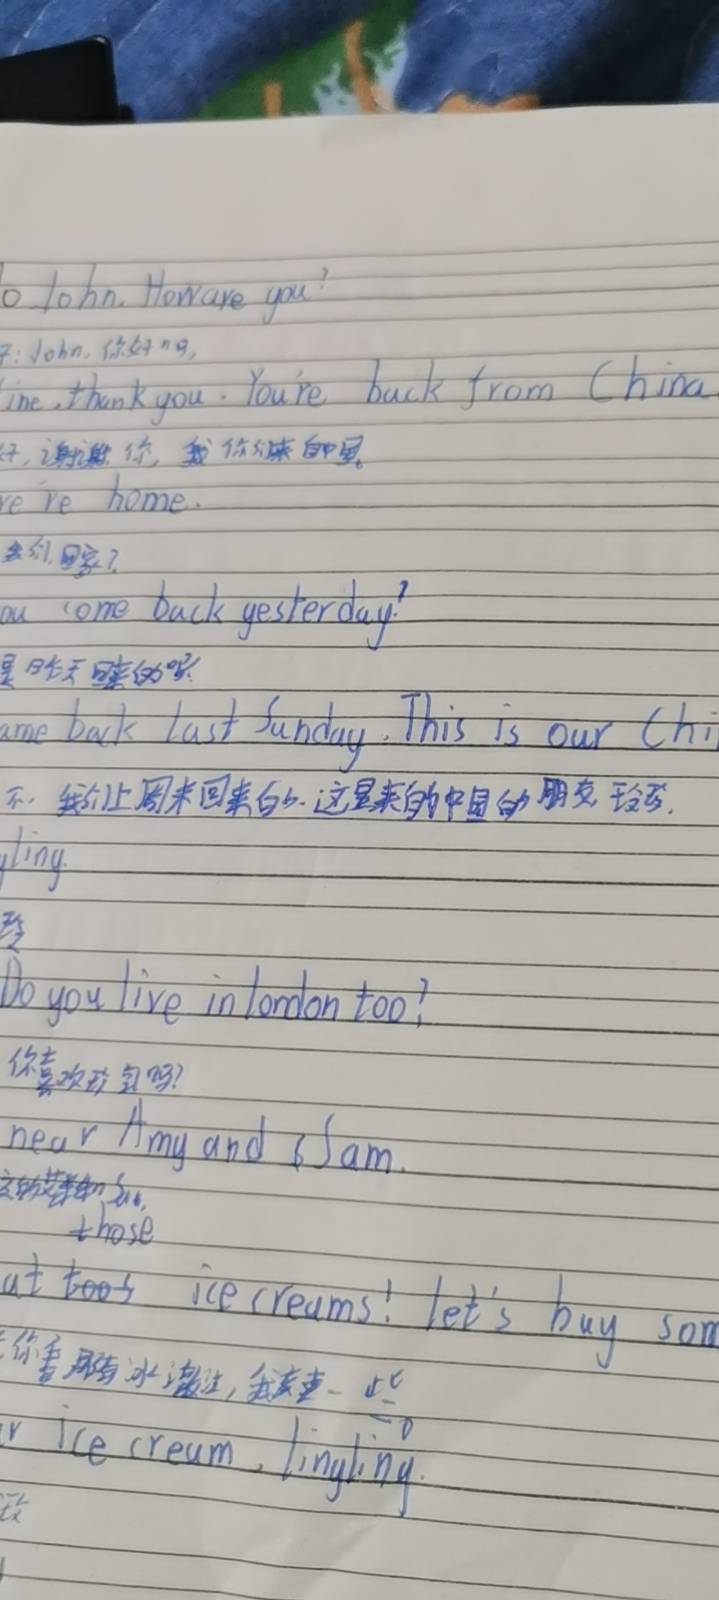 o John. How are you?
: John, 你好吗,
ine, thank you. You're back from China.
好, 谢谢你, 你们来自中国。
e're home.
们 回家了
ou come back yesterday?
是昨天回来的吗
ame back last Sunday. This is our Chi
不, 我们上周末回来的. 这是来的中国的朋友 玲玲,
gling.
玲
Do you live in london too?
你喜欢 吗?
near Amy and Sam.
those
ut ice creams! let's buy som
你看 冰激 , 我 一些
r ice cream, lingling.